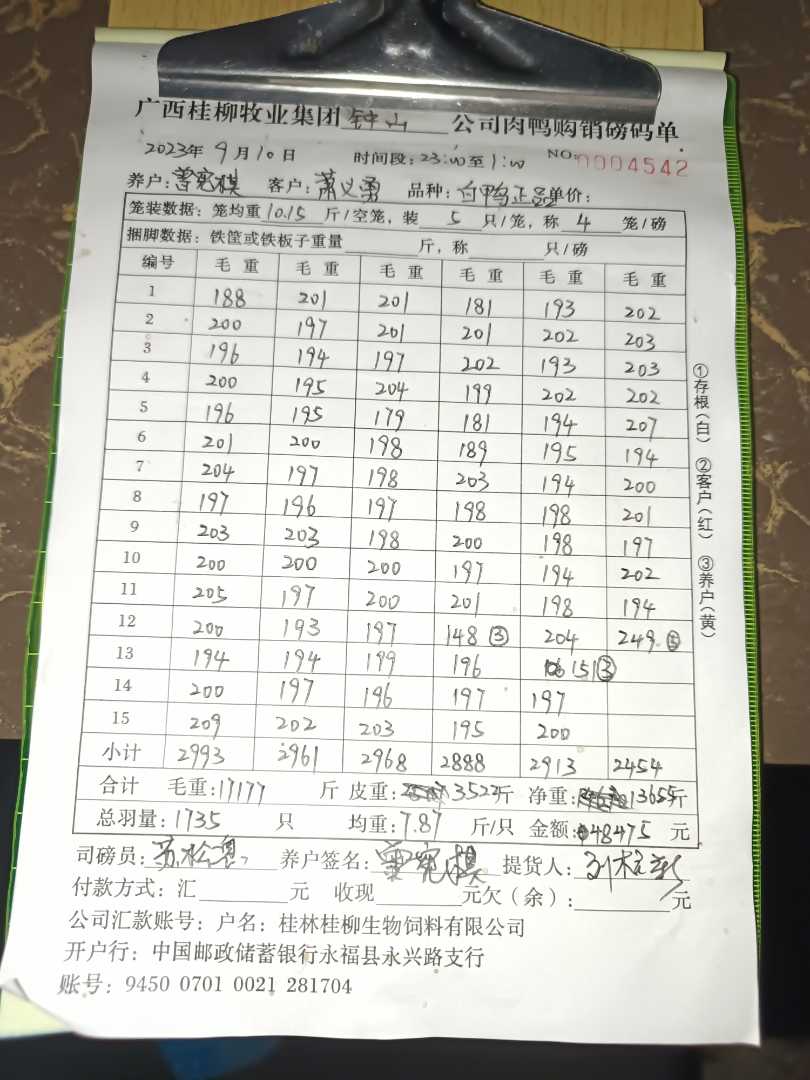 广西桂柳牧业集团 钟山 公司肉鸭购销磅码单
2023年 9月10日 时间段：23:00至1:00 NO:0004542
养户：曾宪祺 客户：萧义勇 品种：白鸭正品 单价：
笼装数据：笼均重 10.15 斤/空笼，装 5 只/笼，称 4 笼/磅
捆脚数据：铁筐或铁板子重量 斤，称 只/磅
编号 毛重 毛重 毛重 毛重 毛重 毛重
1 188 201 201 181 193 202
2 200 197 201 201 202 203
3 196 194 197 202 193 203
4 200 195 204 199 202 202
5 196 195 179 181 194 207
6 201 200 198 189 195 194
7 204 197 198 203 194 200
8 197 196 197 198 198 201
9 203 203 198 200 198 197
10 200 200 200 197 194 202
11 205 197 200 201 198 194
12 200 193 197 148③ 204 249⑤
13 194 194 199 196 151③
14 200 197 196 197 197
15 209 202 203 195 200
小计 2993 2961 2968 2888 2913 2454
合计 毛重：17177 斤 皮重：3522斤 净重：13655斤
总羽量：1735 只 均重：7.87 斤/只 金额：48475 元
司磅员： 养户签名： 提货人：
付款方式：汇 元 收现 元欠（余）： 元
公司汇款账号：户名：桂林桂柳生物饲料有限公司
开户行：中国邮政储蓄银行永福县永兴路支行
账号：9450 0701 0021 281704
①存根（白） ②客户（红） ③养户（黄）